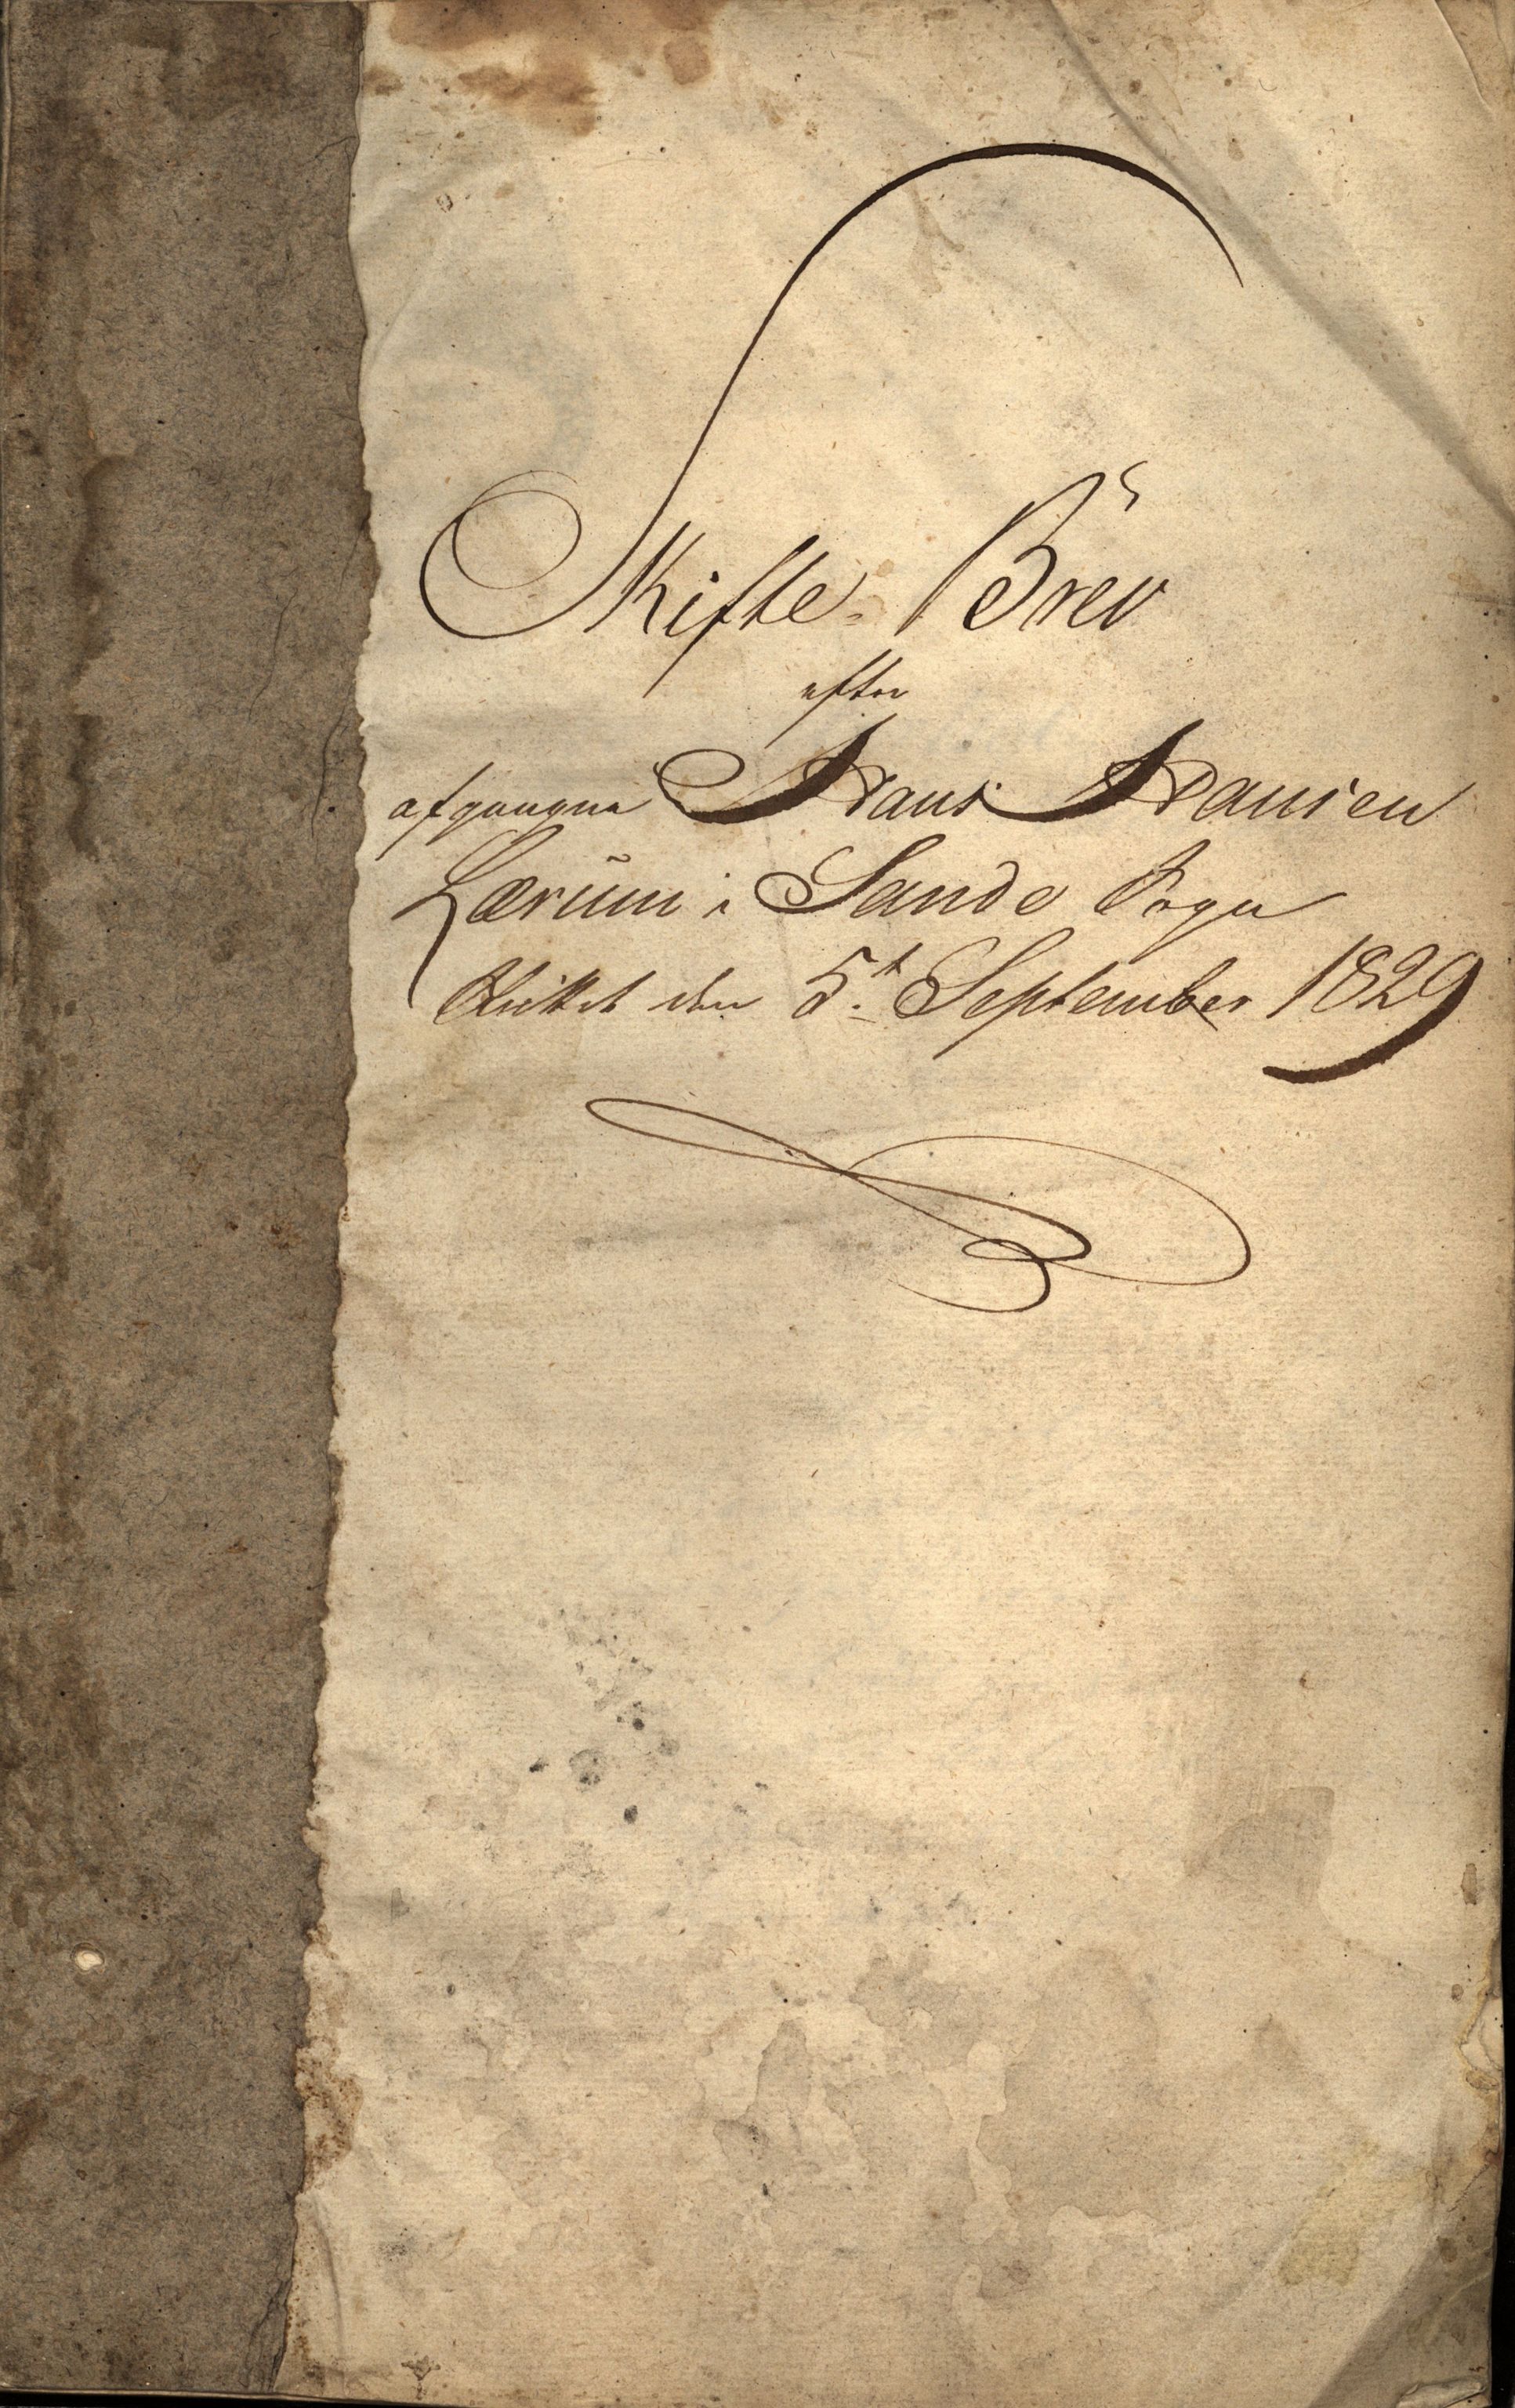 Skifte-Brev
efter
afgangne Hans Hansen
Lærum i Sande Sogn
Sluttet den 5t September 1829